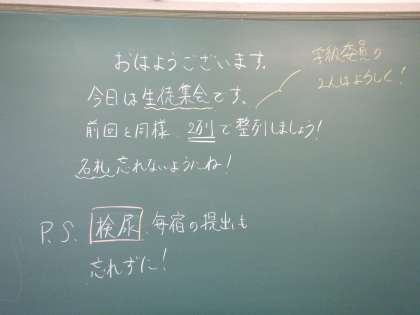 おはようございます。
学級委員の
2人はよろしく!
今日は生徒集会です。
前回と同様 2列で整列しましょう!
名札忘れないようにね!
P.S. 検尿 毎宿の提出も
忘れずに!